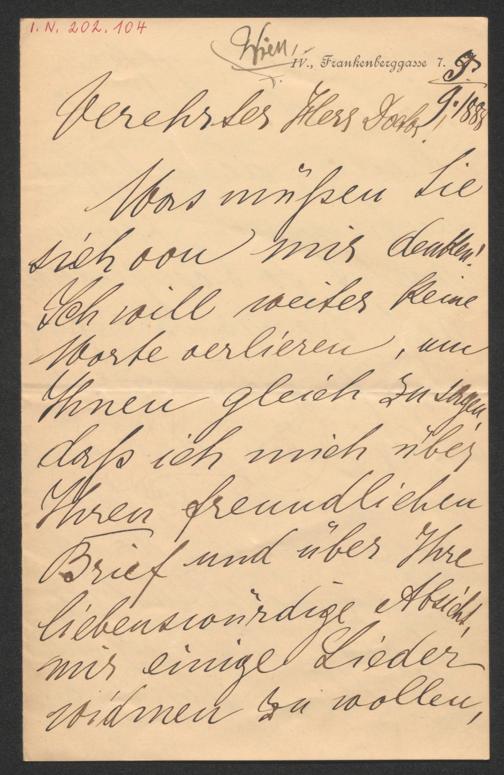 I. N. 202.104
Wien,
IV., Frankenberggasse 7.
9./1888
Verehrter Herr Doctor!
Was müßen Sie
sich von mir denken!
Ich will weiter keine
Worte verlieren, um
Ihnen gleich zu sagen,
daß ich mich über
Ihren freundlichen
Brief und über Ihre
liebenswürdige Absicht,
mir einige Lieder
widmen zu wollen,